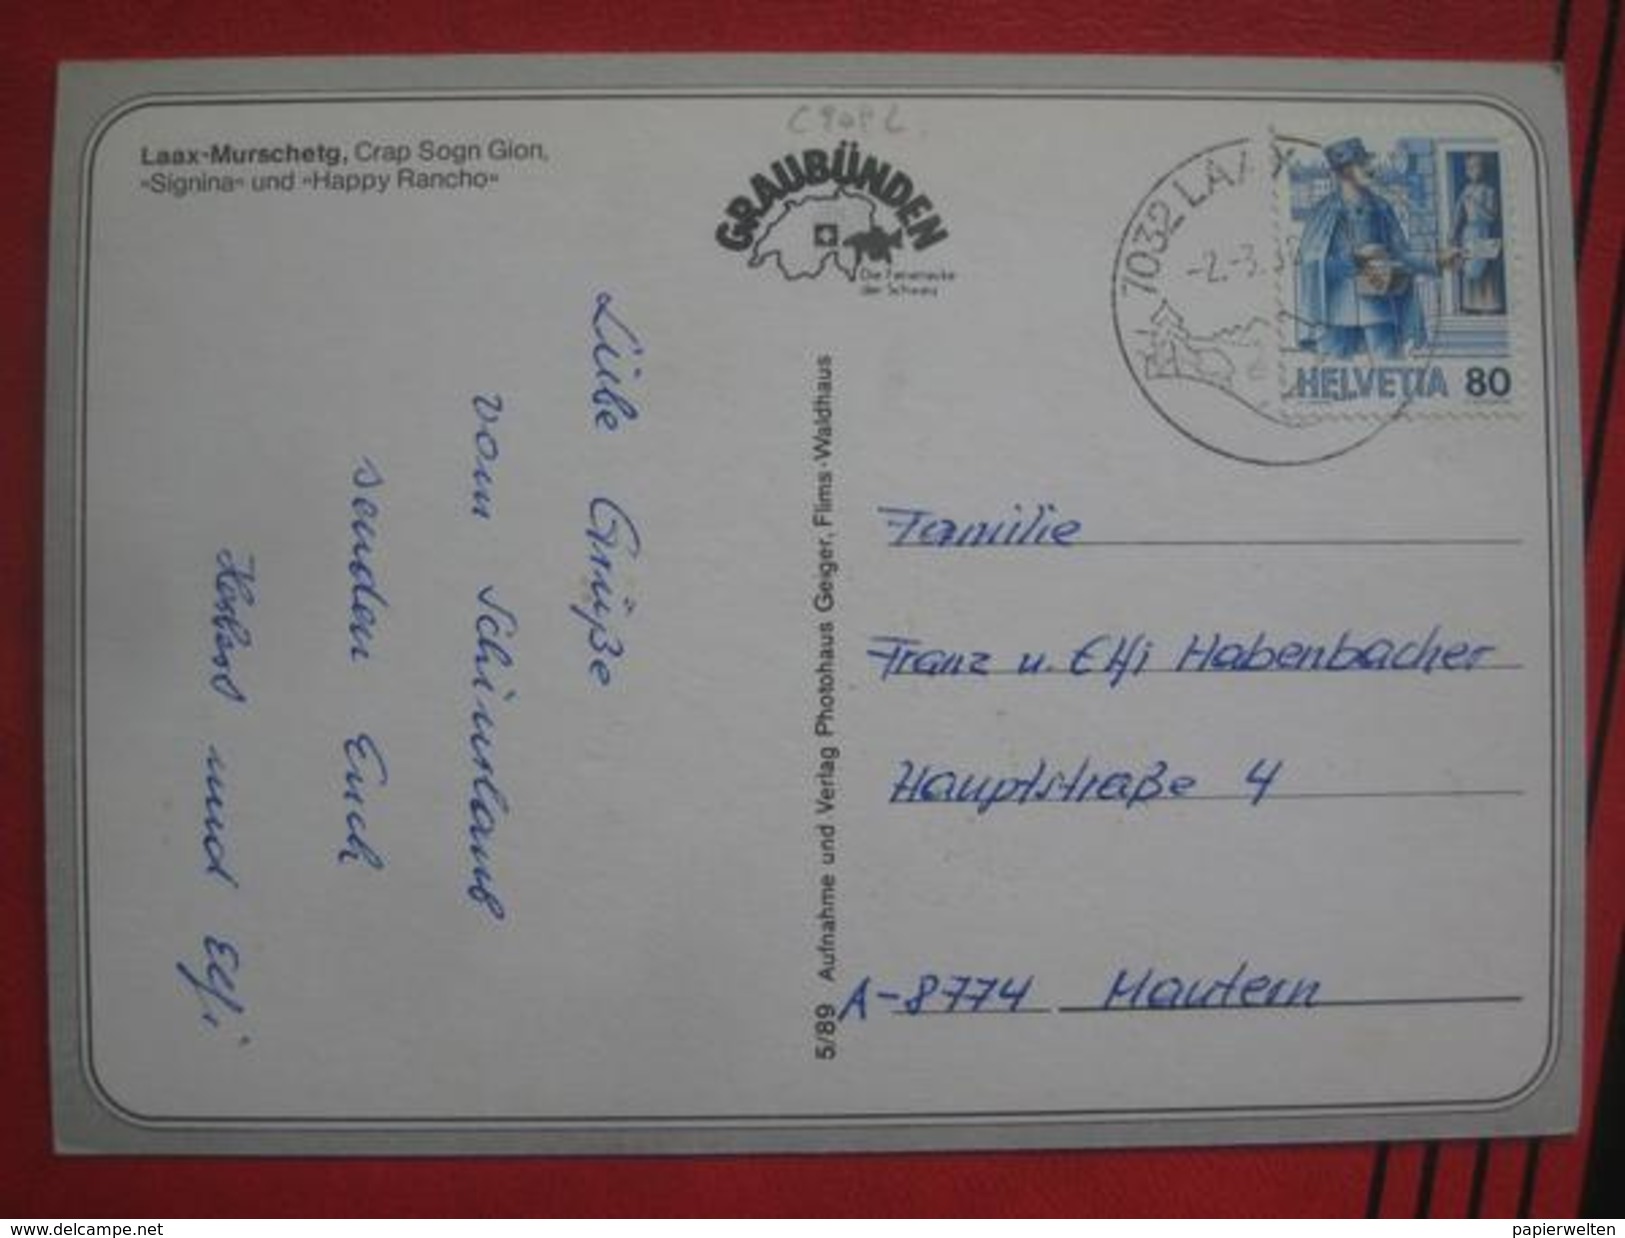 Laax-Murschetg, Crap Sogn Gion,
«Signina» und «Happy Rancho»
GRAUBÜNDEN
Die Ferienecke
der Schweiz
7032 LAAX
-2.-3.
HELVETIA 80
Liebe Grüße
vom Schiurlaub
senden Euch
und Elfi
5/89 Aufnahme und Verlag Photohaus Geiger, Flims-Waldhaus
Familie
Franz u. Elfi Habenbacher
Hauptstraße 4
A-8774 Mautern
www.delcampe.net
papierwelten